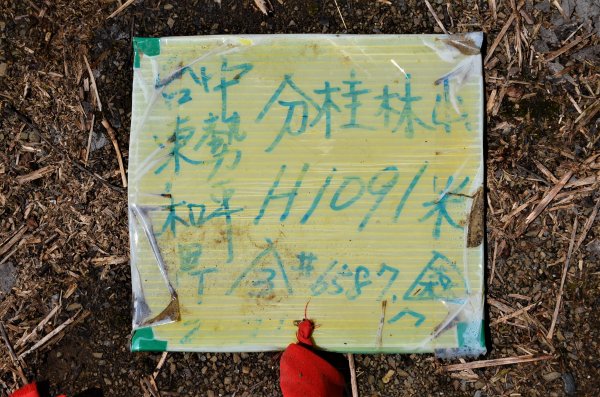 台中
東勢
和平
界
分桂林山
H1091米
#6587